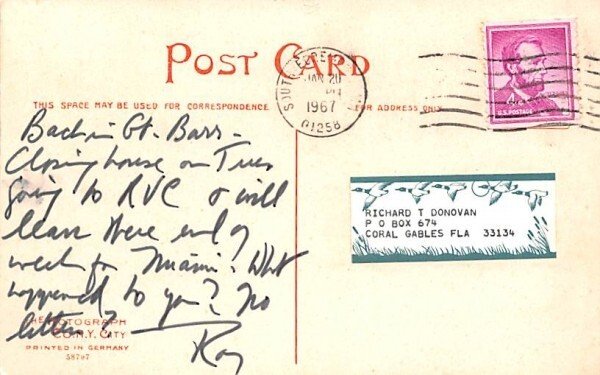 POST CARD
THIS SPACE MAY BE USED FOR CORRESPONDENCE
FOR ADDRESS ONLY
SOUTH EGREMONT
JAN 20
PM
1967
01258
U.S. POSTAGE
Back in Gt. Barr -
Closing house on Tues
going to RVC & will
leave there end of
week for Miami! What
happened to you? No
letter?
Ray
RICHARD T DONOVAN
P O BOX 674
CORAL GABLES FLA 33134
THE ROTOGRAPH
CO. N.Y. CITY
PRINTED IN GERMANY
58797